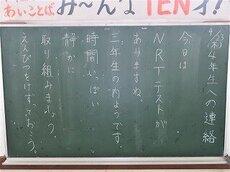 あいことば み〜んな TEN才!
4年生への連絡
今日は
NRTテストが
ありますね。
三年生の内ようです。
時間いっぱい
静かに
取り組みましょう。
えんぴつをけずっておこう。